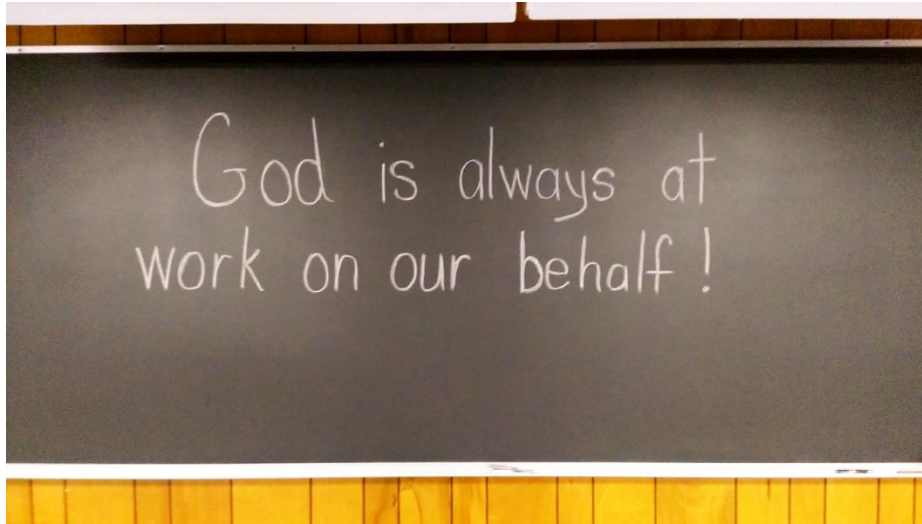 God is always at
work on our behalf!